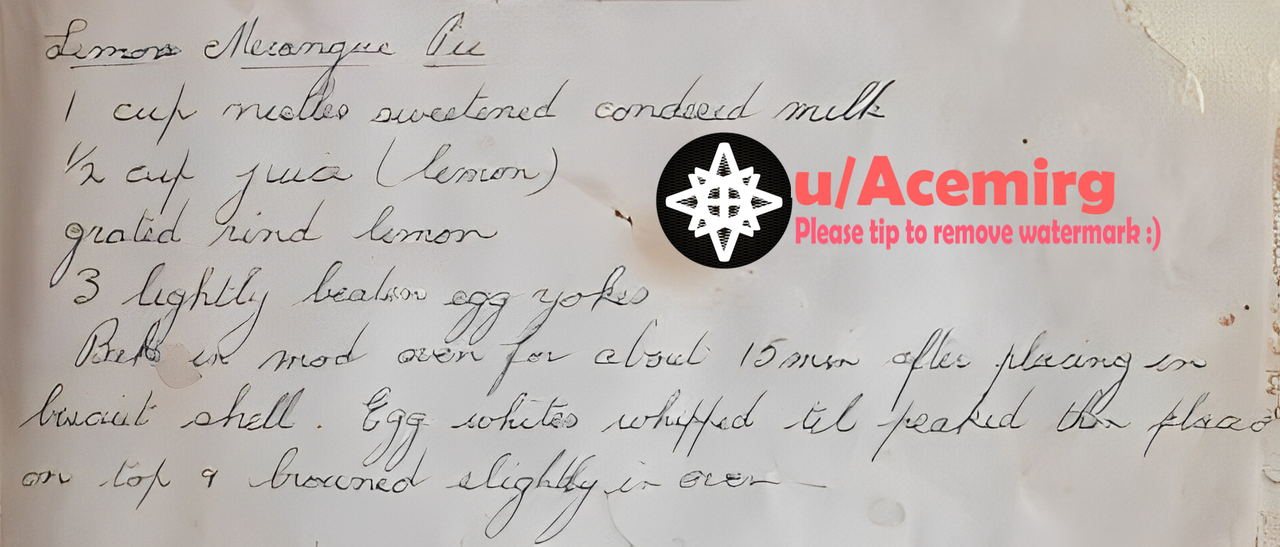 Lemon Merangue Pie
1 cup nestles sweetened condesed milk
1/2 cup juice (lemon)
grated rind lemon
3 lightly beaten egg yokes
Bake in mod oven for about 15 min after placing in
biscuit shell. Egg whites whipped til peaked then place
on top & browned slightly in oven
u/Acemirg
Please tip to remove watermark :)